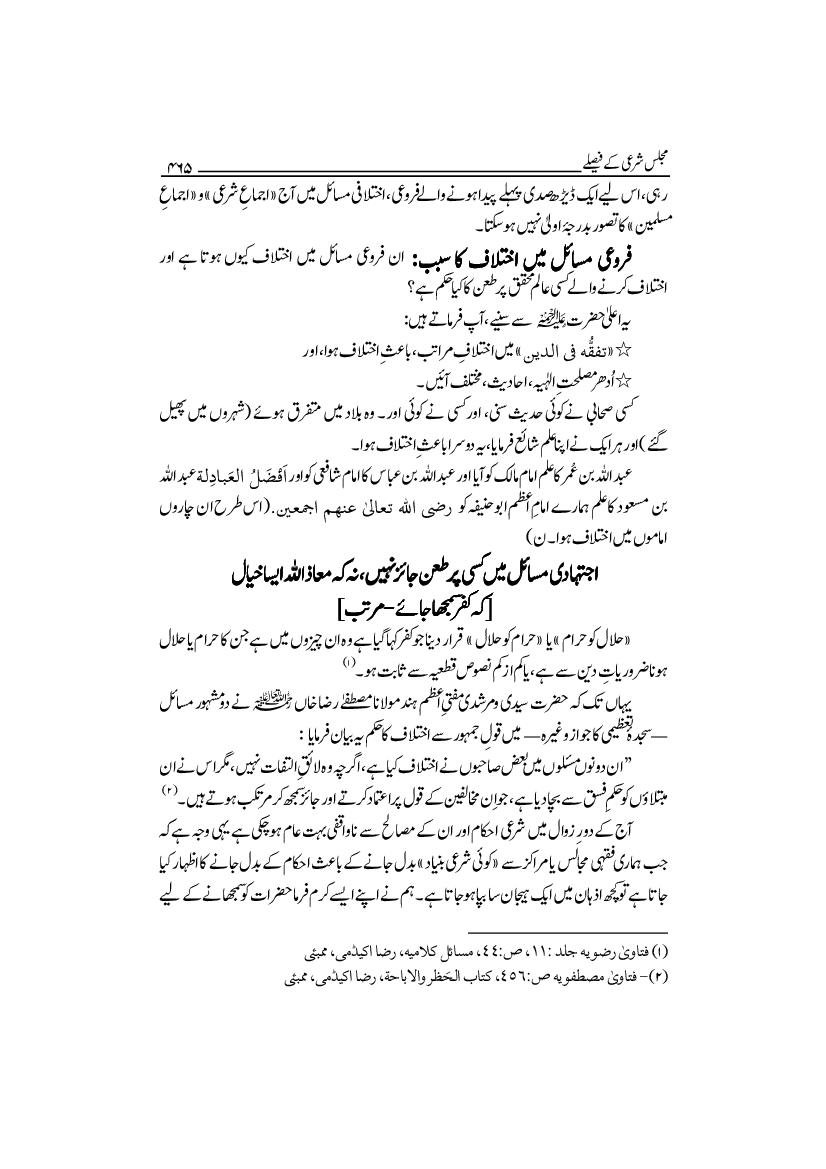 مجلس شرعی کے فیصلے ۴۶۵
رہی، اس لیے ایک ڈیڑھ صدی پہلے پیدا ہونے والے فروعی، اختلافی مسائل میں آج «اجماعِ شرعی» و «اجماعِ
مسلمین» کا تصور بدرجۂ اولیٰ نہیں ہو سکتا۔
فروعی مسائل میں اختلاف کا سبب: ان فروعی مسائل میں اختلاف کیوں ہوتا ہے اور
اختلاف کرنے والے کسی عالم محقق پر طعن کا کیا حکم ہے؟
یہ اعلیٰ حضرت علیہ الرحمہ سے سنیے، آپ فرماتے ہیں:
☆ «تفقُّه فی الدین» میں اختلافِ مراتب، باعثِ اختلاف ہوا، اور
☆ اُدھر مصلحتِ الٰہیہ، احادیث، مختلف آئیں۔
کسی صحابی نے کوئی حدیث سنی، اور کسی نے کوئی اور۔ وہ بلاد میں متفرق ہوئے (شہروں میں پھیل
گئے) اور ہر ایک نے اپنا علم شائع فرمایا، یہ دوسرا باعثِ اختلاف ہوا۔
عبد اللہ بن عُمر کا علم امام مالک کو آیا اور عبد اللہ بن عباس کا امام شافعی کو اور اَفْضَلُ العَبادِلة عبد اللہ
بن مسعود کا علم ہمارے امامِ اعظم ابو حنیفہ کو رضی الله تعالیٰ عنهم اجمعین. (اس طرح ان چاروں
اماموں میں اختلاف ہوا۔ ن)
اجتہادی مسائل میں کسی پر طعن جائز نہیں، نہ کہ معاذ اللہ ایسا خیال
[کہ کفر سمجھا جائے – مرتب]
«حلال کو حرام» یا «حرام کو حلال» قرار دینا جو کفر کہا گیا ہے وہ ان چیزوں میں ہے جن کا حرام یا حلال
ہونا ضروریاتِ دین سے ہے، یا کم از کم نصوص قطعیہ سے ثابت ہو۔ (۱)
یہاں تک کہ حضرت سیدی و مرشدی مفتیِ اعظم ہند مولانا مصطفےٰ رضا خاں رحمۃ اللہ علیہ نے دو مشہور مسائل
— سجدۂ تعظیمی کا جواز وغیرہ — میں قولِ جمہور سے اختلاف کا حکم یہ بیان فرمایا :
”ان دونوں مسئلوں میں بعض صاحبوں نے اختلاف کیا ہے، اگرچہ وہ لائقِ التفات نہیں، مگر اس نے ان
مبتلاؤں کو حکمِ فسق سے بچا دیا ہے، جو اِن مخالفین کے قول پر اعتماد کرتے اور جائز سمجھ کر مرتکب ہوتے ہیں۔ (۲)
آج کے دورِ زوال میں شرعی احکام اور ان کے مصالح سے ناواقفی بہت عام ہو چکی ہے یہی وجہ ہے کہ
جب ہماری فقہی مجالس یا مراکز سے «کوئی شرعی بنیاد» بدل جانے کے باعث احکام کے بدل جانے کا اظہار کیا
جاتا ہے تو کچھ اذہان میں ایک ہیجان سا بپا ہو جاتا ہے۔ ہم نے اپنے ایسے کرم فرما حضرات کو سمجھانے کے لیے
(١) فتاویٰ رضویه جلد :١١، ص:٤٤، مسائل کلامیه، رضا اکیڈمی، ممبئی
(٢)– فتاویٰ مصطفویه ص:٤٥٦، کتاب الحَظر والاباحة، رضا اکیڈمی، ممبئی